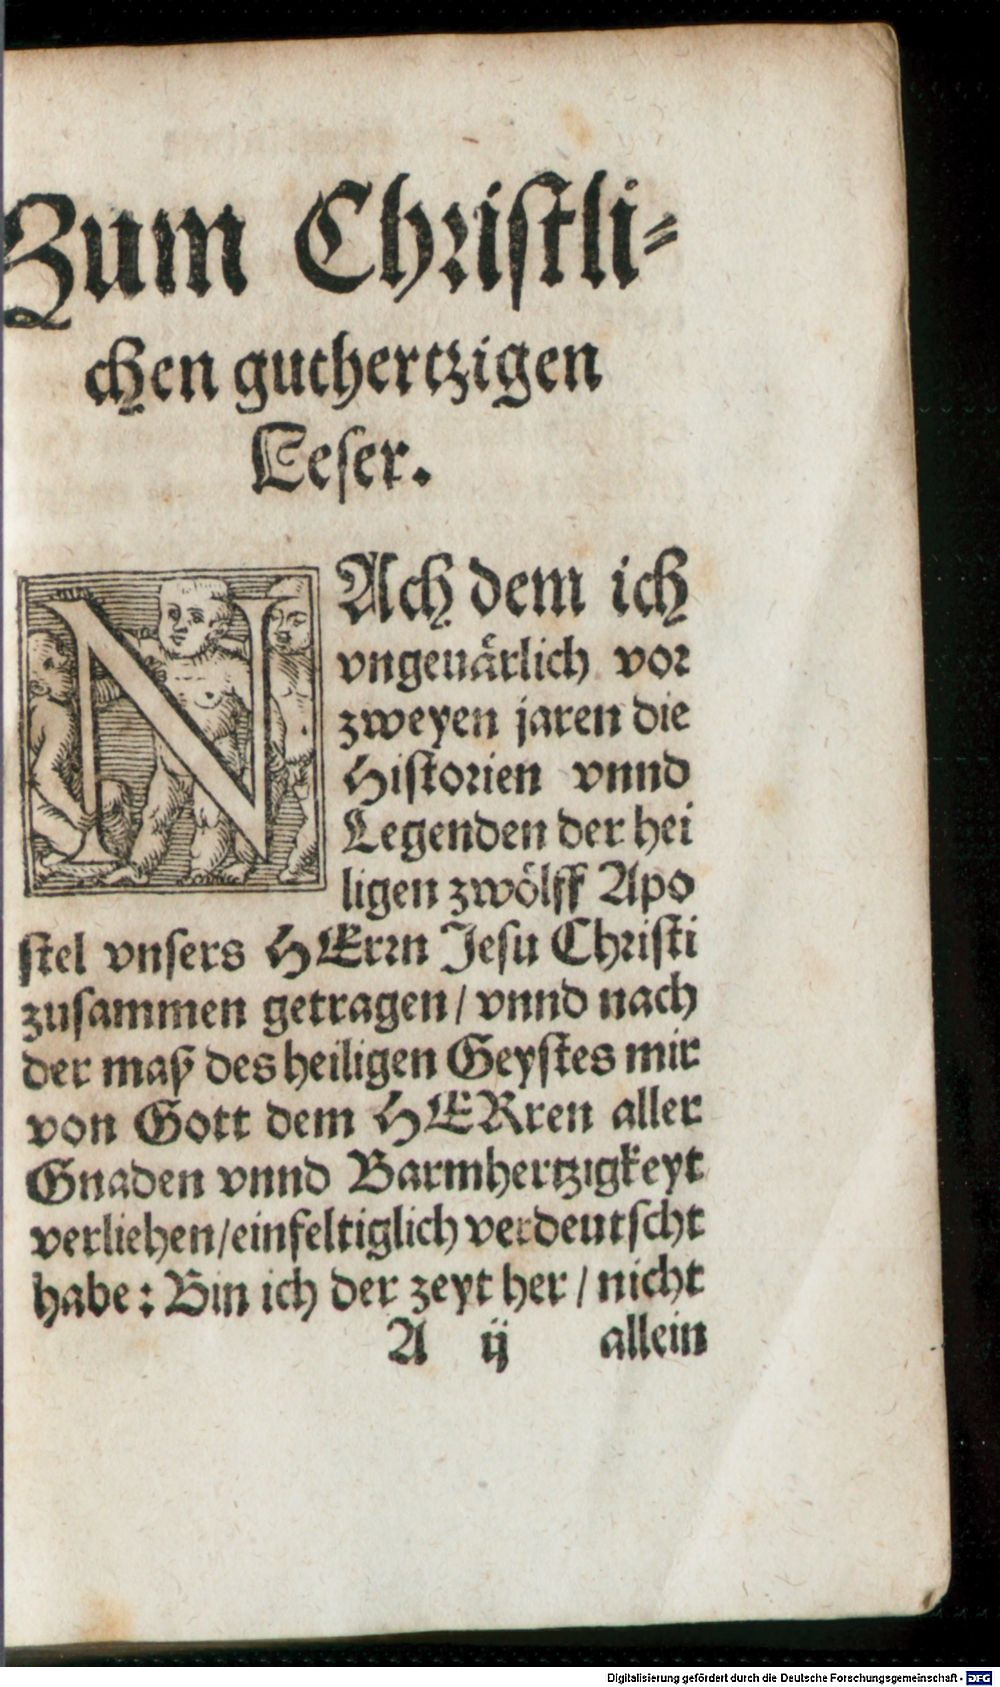 Zum Christli⸗
chen guthertzigen
Leser.
NAch dem ich
vngeuärlich vor
zweyen jaren die
Historien vnnd
Legenden der hei
ligen zwölff Apo
stel vnsers HErrn Jesu Christi
zusammen getragen / vnnd nach
der maß des heiligen Geystes mir
von Gott dem HERren aller
Gnaden vnnd Barmhertzigkeyt
verliehen / einfeltiglich verdeutscht
habe : Bin ich der zeyt her / nicht
A ij allein
Digitalisierung gefördert durch die Deutsche Forschungsgemeinschaft - DFG